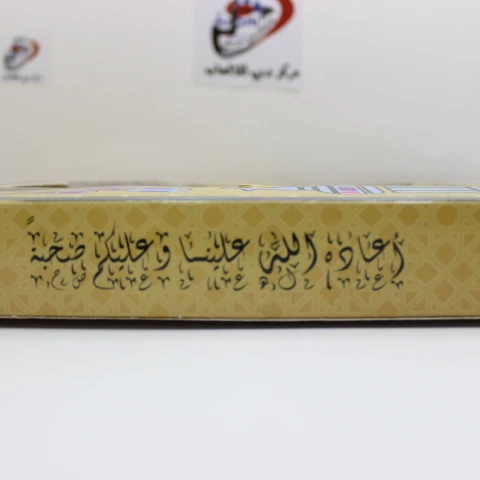 مركز دبي للألعاب
أعاده الله علينا وعليكم صحةً